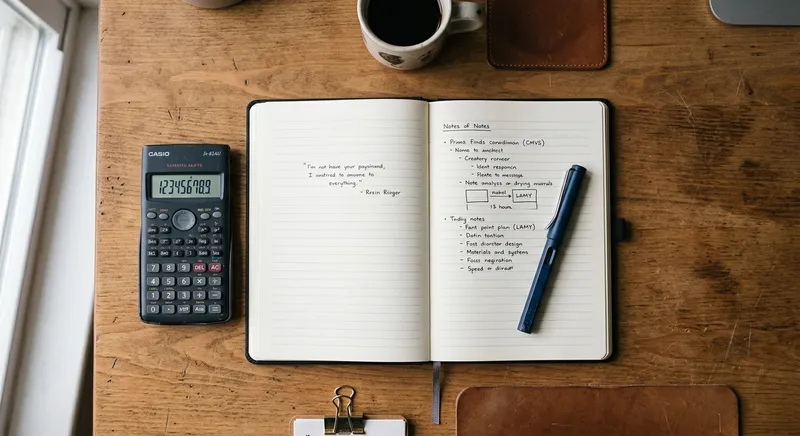 CASIO
fx-82AU
123456789
DEL AC
7 8 9
"I'm not have your paysinand,
I andired to anuone to
everything."
- Resin Rüger
Notes of Notes
• Prona Finds canediman (CMVS)
- Name to anchect
- Creatory rorneer
- Ident responcn
- Flente to messags
- Note analysis or drying muorals
nabel
LAMY
15 hours
• Tndiny notes
- Fant point plan (LAMY)
- Datin tantiam
- Fost diorctor design
- Materials and systems
- Focss negiration
- Speed or diredt